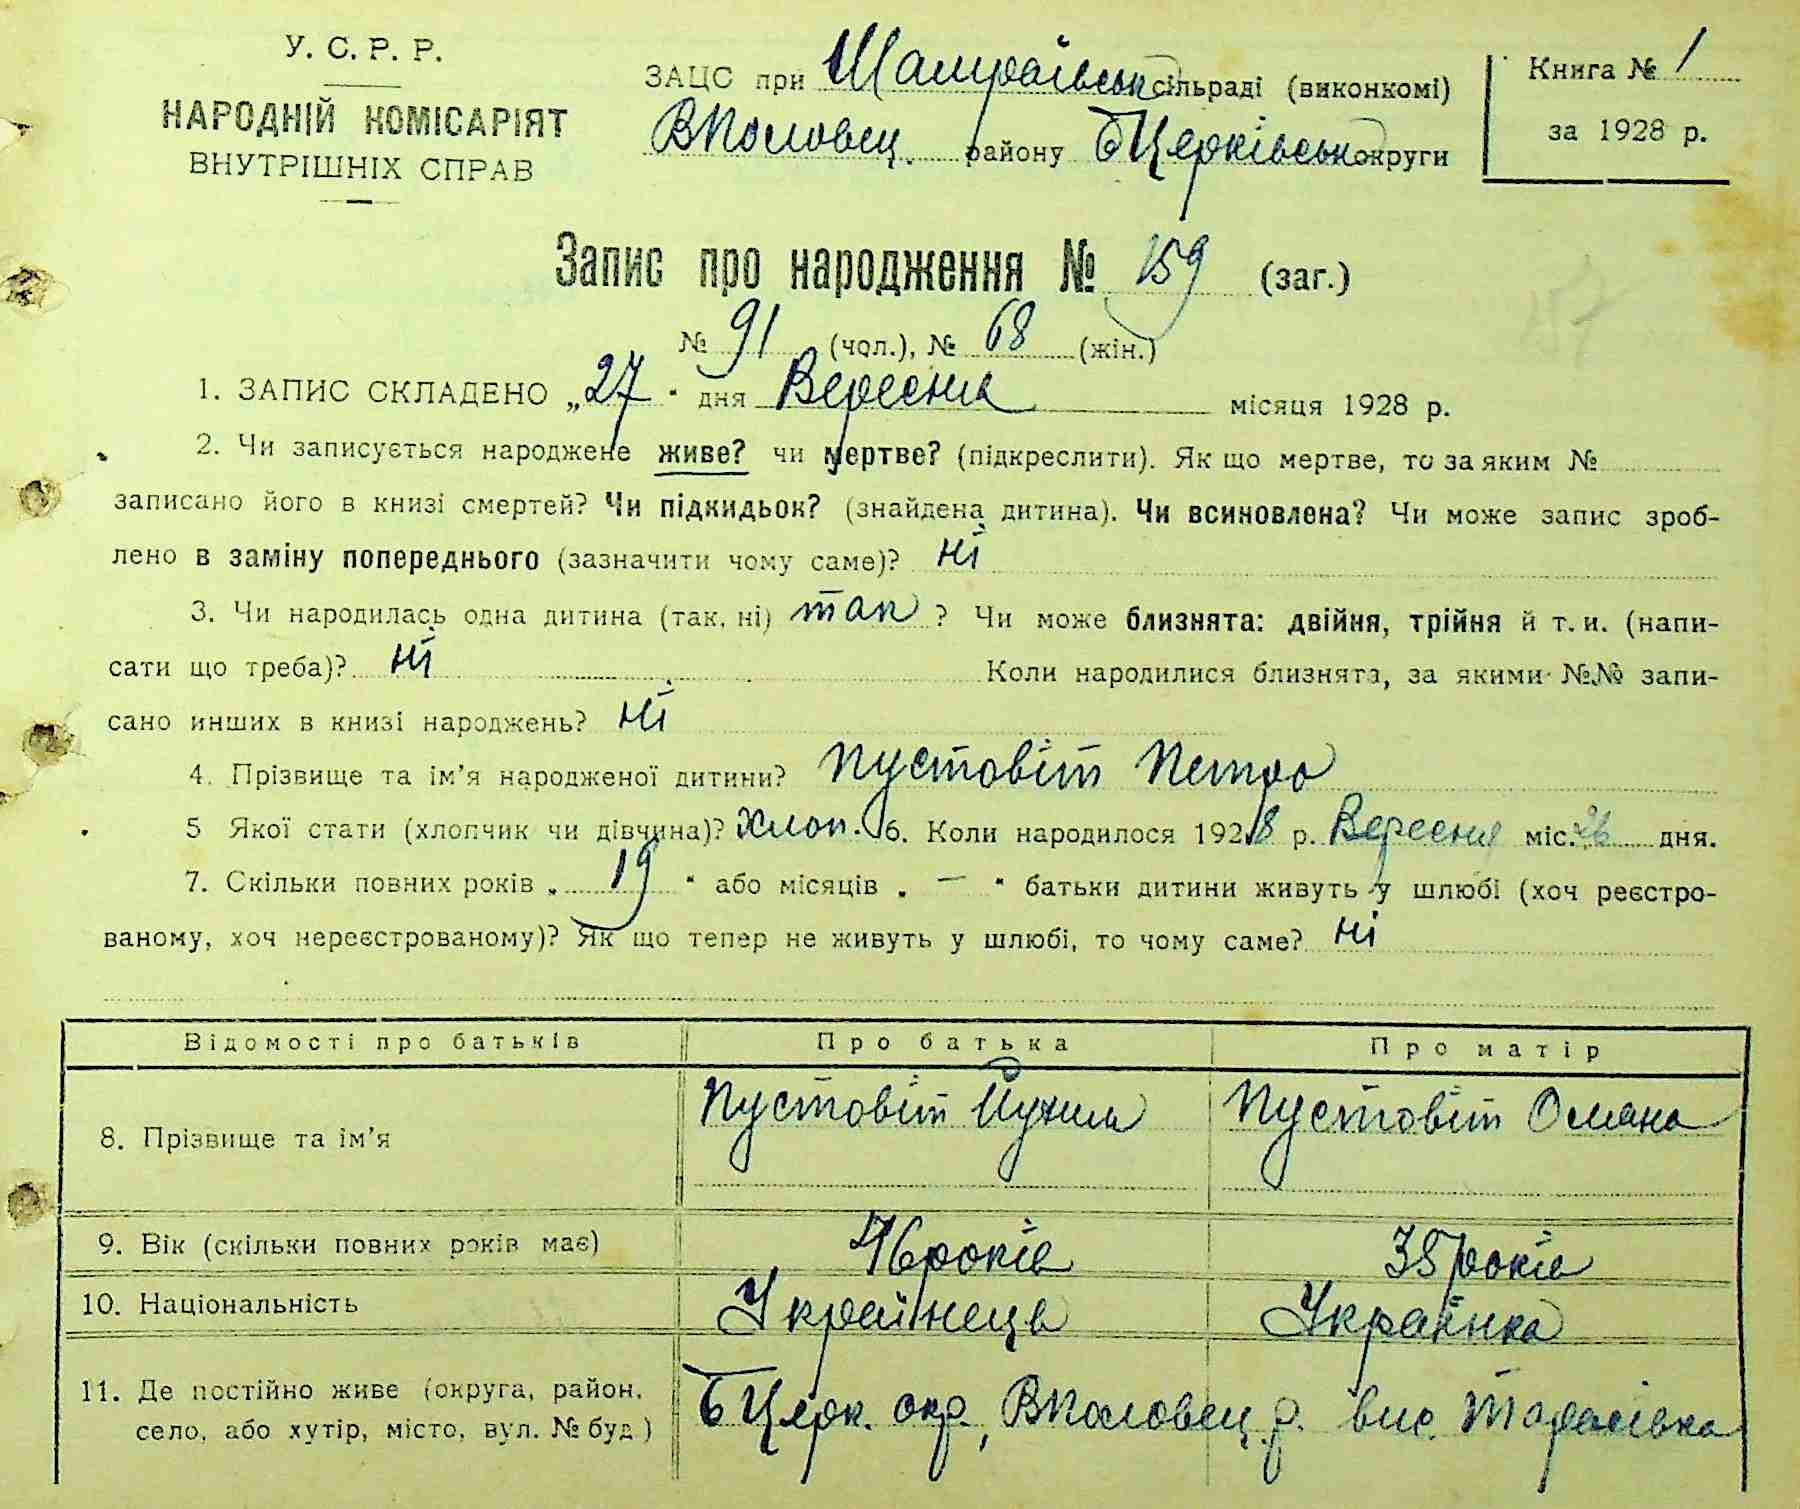 У. С. Р. Р.
НАРОДНІЙ КОМІСАРІЯТ
ВНУТРІШНІХ СПРАВ
ЗАЦС при Шамраївськ сільраді (виконкомі)
ВПоловец. району БЦерківськ округи
Книга № 1
за 1928 р.
Запис про народження № 159 (заг.)
№ 91 (чол.), № 68 (жін.)
1. ЗАПИС СКЛАДЕНО „27" дня Вересня місяця 1928 р.
2. Чи записується народжене живе? чи мертве? (підкреслити). Як що мертве, то за яким №
записано його в книзі смертей? Чи підкидьок? (знайдена дитина). Чи всиновлена? Чи може запис зроб-
лено в заміну попереднього (зазначити чому саме)? ні
3. Чи народилась одна дитина (так, ні) так ? Чи може близнята: двійня, трійня й т. и. (напи-
сати що треба)? ні Коли народилися близнята, за якими №№ запи-
сано инших в книзі народжень? ні
4. Прізвище та ім'я народженої дитини? Пустовіт Петро
5 Якої стати (хлопчик чи дівчина)? Хлоп. 6. Коли народилося 1928 р. Вересня міс. 26 дня.
7. Скільки повних років „ 19 " або місяців „ — " батьки дитини живуть у шлюбі (хоч реєстро-
ваному, хоч нереєстрованому)? Як що тепер не живуть у шлюбі, то чому саме? ні
Відомості про батьків Про батька Про матір
8. Прізвище та ім'я Пустовіт Пустовіт
9. Вік (скільки повних років має) 46 років 35 років
10. Національність Українець Українка
11. Де постійно живе (округа, район, село, або хутір, місто, вул. № буд) БЦерк. окр., ВПоловец. р. вис. Тарасівка